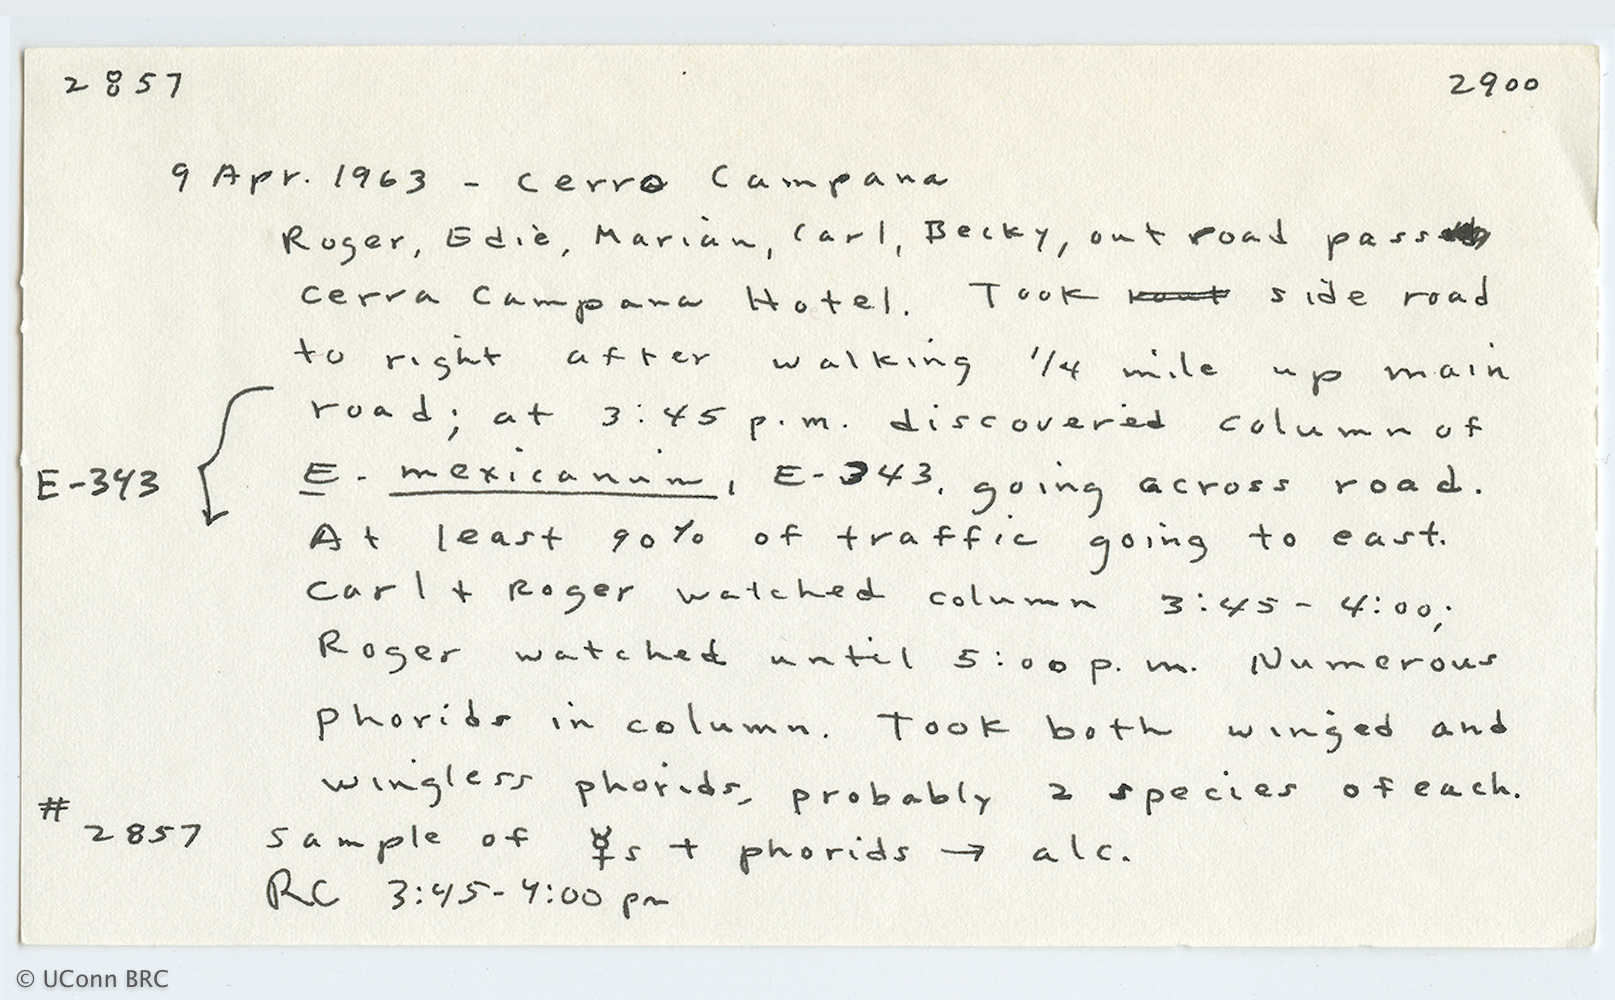 2857 2900
9 Apr. 1963 - Cerro Campana
Roger, Edie, Marian, Carl, Becky, out road pass
Cerra Campana Hotel. Took rout side road
to right after walking 1/4 mile up main
road; at 3:45 p.m. discovered column of
E-343 E. mexicanum, E-343, going across road.
At least 90% of traffic going to east.
Carl + Roger watched column 3:45 - 4:00;
Roger watched until 5:00 p.m. Numerous
phorids in column. Took both winged and
wingless phorids, probably 2 species of each.
# 2857 Sample of ☿s + phorids → alc.
RC 3:45-4:00 pm
© UConn BRC